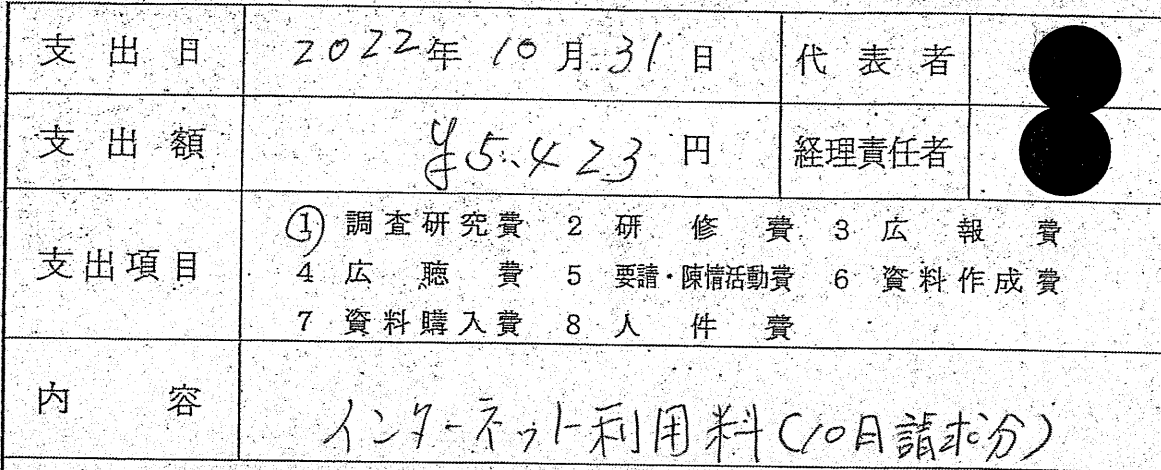 支出日 2022年10月31日 代表者
支出額 ¥5,423円 経理責任者
支出項目 ① 調査研究費 2 研修費 3 広報費
4 広聴費 5 要請・陳情活動費 6 資料作成費
7 資料購入費 8 人件費
内容 インターネット利用料(10月請求分)